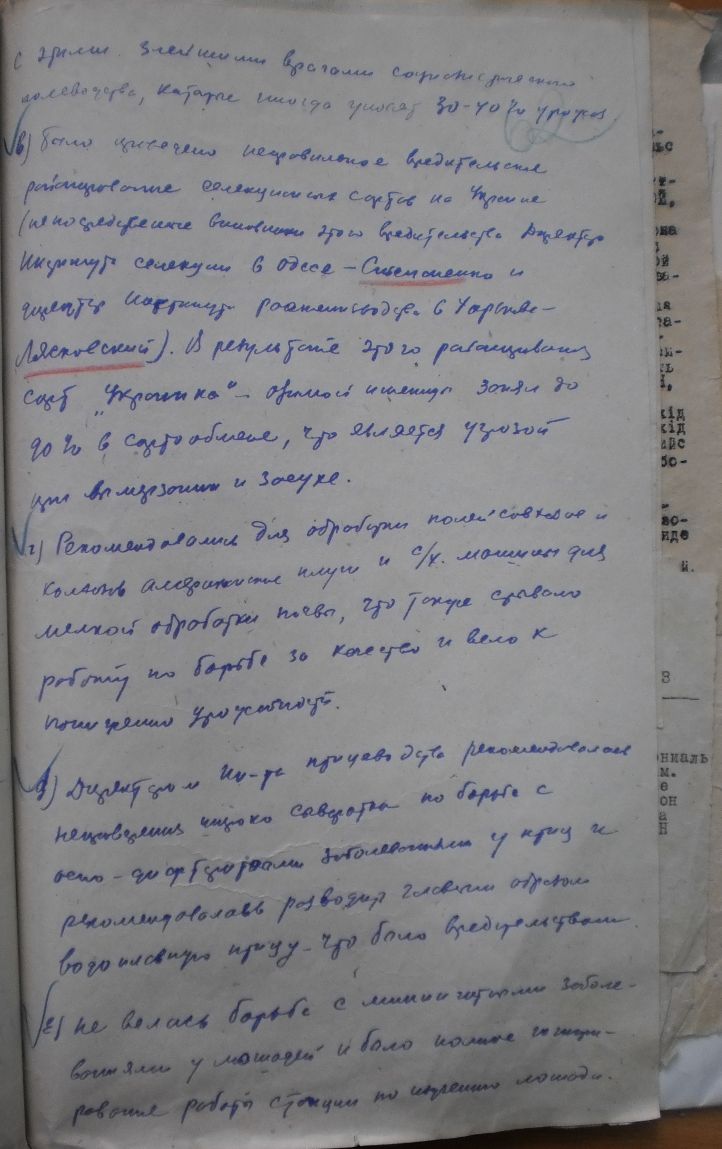 с этими злейшими врагами социалистического
полеводства, которые иногда уносят 30-40% урожая
в) было проведено неправильное вредительское
районирование селекционных сортов на Украине
(непосредственные виновники этого вредительства Директор
Института селекции в Одессе – Степаненко и
директор Института растениеводства в Харькове –
Лясковский). В результате этого районирования
сорт „Украинка“ – озимой пшеницы занял до
90% в сортообмене, что является угрозой
при вымерзании и засухе.
г) Рекомендовались для обработки полей совхозов и
колхозов американские плуги и с/х. машины для
мелкой обработки почвы, что также срывало
работу по борьбе за качество и вело к
понижению урожайности.
д) Директором Ин-та птицеводства рекомендовалась
широко сыворотка по борьбе с
оспо-дифтеритными заболеваниями у птиц и
рекомендовалось разводить главным образом
водоплавную птицу – что было вредительством.
е) не велась борьба с заболе-
ваниями у лошадей и было полное игнори-
рование работы станции по изучению лошади.
кід
кід
ийс
бо-
иде
й.
3
ониаль
м.
е
он
а
Н